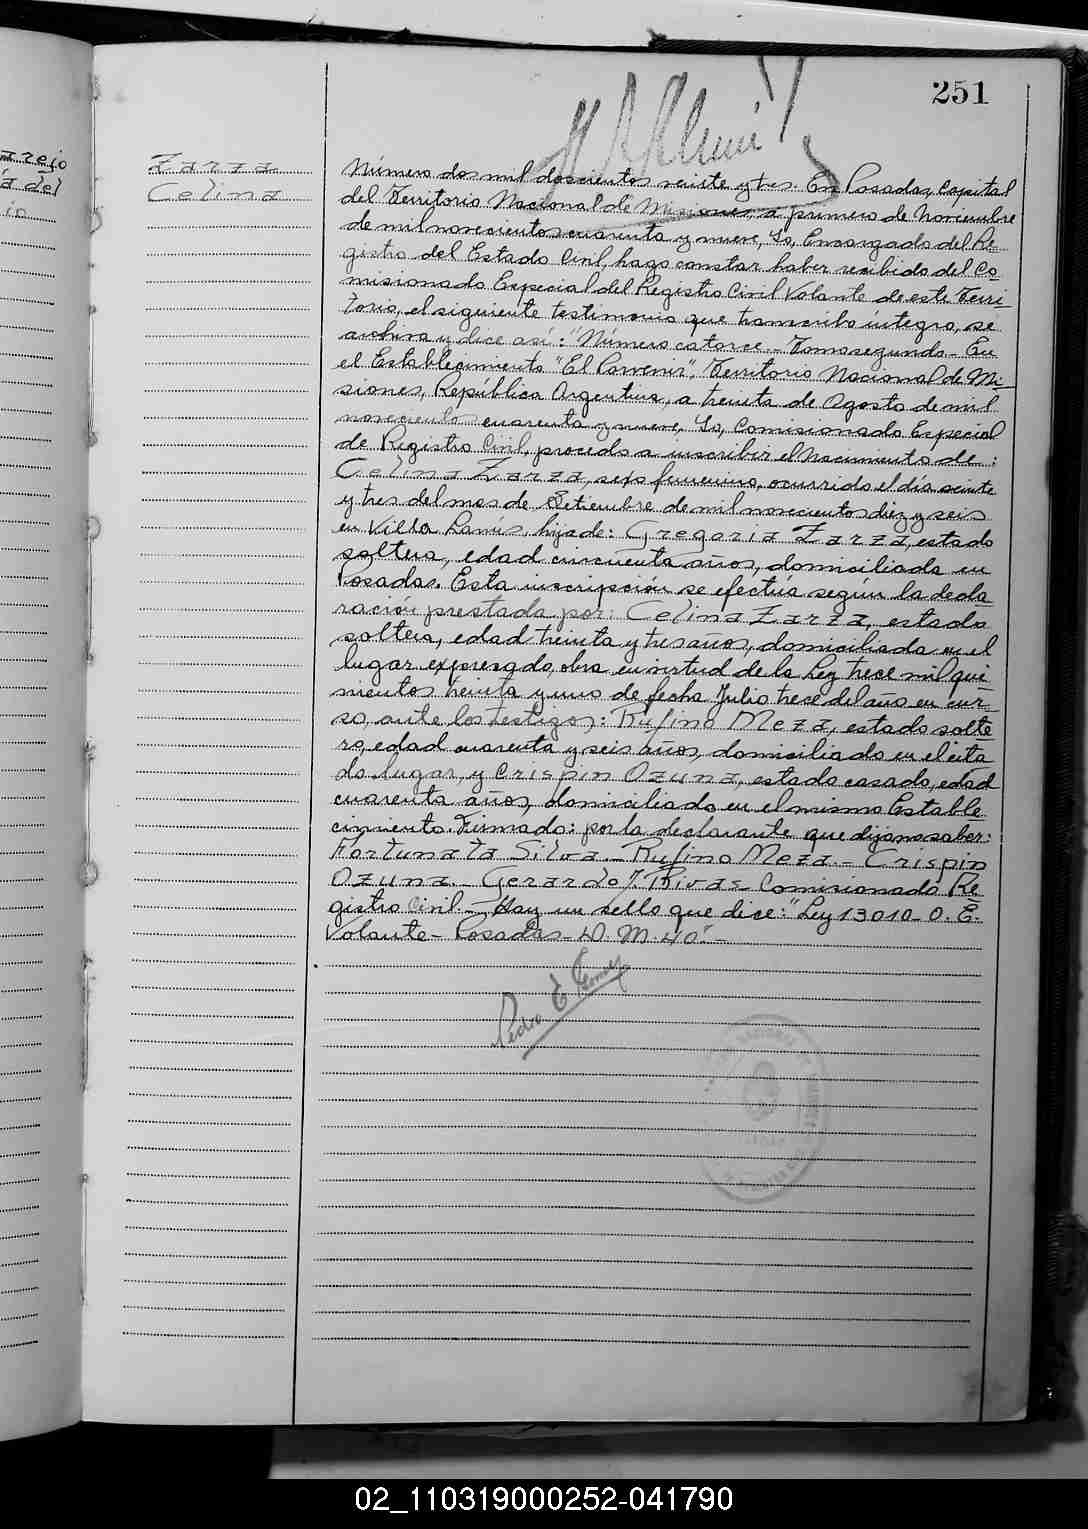 251
arejo
a del
io
Zarza
Celina
Número dos mil doscientos veinte y tres. En Posadas, Capital
del Territorio Nacional de Misiones, a primero de Noviembre
de mil novecientos cuarenta y nueve, Yo, Encargado del Re-
gistro del Estado Civil, hago constar haber recibido del Co-
misionado Especial del Registro Civil Volante de este Terri-
torio, el siguiente testimonio que transcribo íntegro, se
archiva y dice así: "Número catorce.- Tomo segundo- En
el Establecimiento "El Porvenir", Territorio Nacional de Mi-
siones, República Argentina, a treinta de Agosto de mil
novecientos cuarenta y nueve, Yo, Comisionado Especial
de Registro Civil, procedo a inscribir el Nacimiento de:
Celina Zarza, sexo femenino, ocurrido el día veinte
y tres del mes de Setiembre de mil novecientos diez y seis
en Villa Lanus, hija de: Gregoria Zarza, estado
soltera, edad cincuenta años, domiciliada en
Posadas. Esta inscripción se efectúa según la decla-
ración prestada por: Celina Zarza, estado
soltera, edad treinta y tres años, domiciliada en el
lugar expresado, obra en virtud de la Ley trece mil qui-
nientos treinta y uno de fecha Julio trece del año en cur-
so, ante los testigos: Rufino Meza, estado solte-
ro, edad cuarenta y seis años, domiciliado en el cita-
do lugar, y Crispin Ozuna, estado casado, edad
cuarenta años, domiciliado en el mismo Estable-
cimiento. Firmado: por la declarante que dijo no saber:
Fortunata Silva.- Rufino Meza.- Crispin
Ozuna.- Gerardo J. Rivas Comisionado Re-
gistro Civil.- Hay un sello que dice: "Ley 13010-O. E.
Volante- Posadas- D. M. 40".-
Pedro E Gomez
02_110319000252-041790